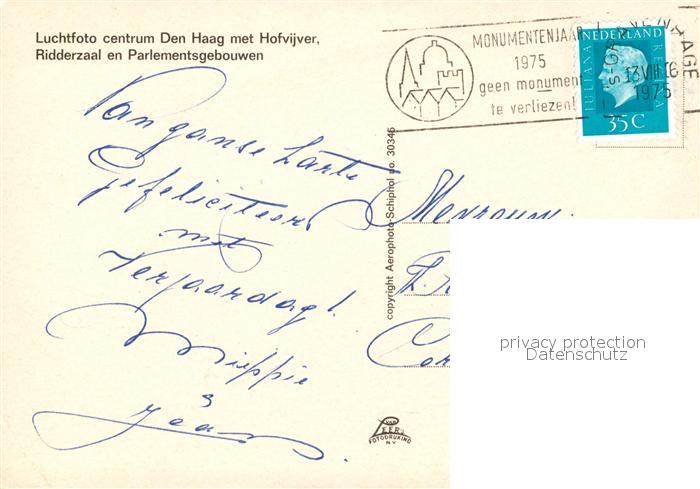 Luchtfoto centrum Den Haag met Hofvijver,
Ridderzaal en Parlementsgebouwen
MONUMENTENJAAR
1975
geen monument
te verliezen!
's-GRAVENHAGE
1975
NEDERLAND
JULIANA
REGINA
35 C
Van ganse harte
Gefeliciteerd
met
Verjaardag!
Mieppie
Jaan
copyright Aerophoto-Schiphol no. 30345
Mevrouw
Th.
Cor
privacy protection
Datenschutz
VAN
LEER'S
FOTODRUKIND
N.V.